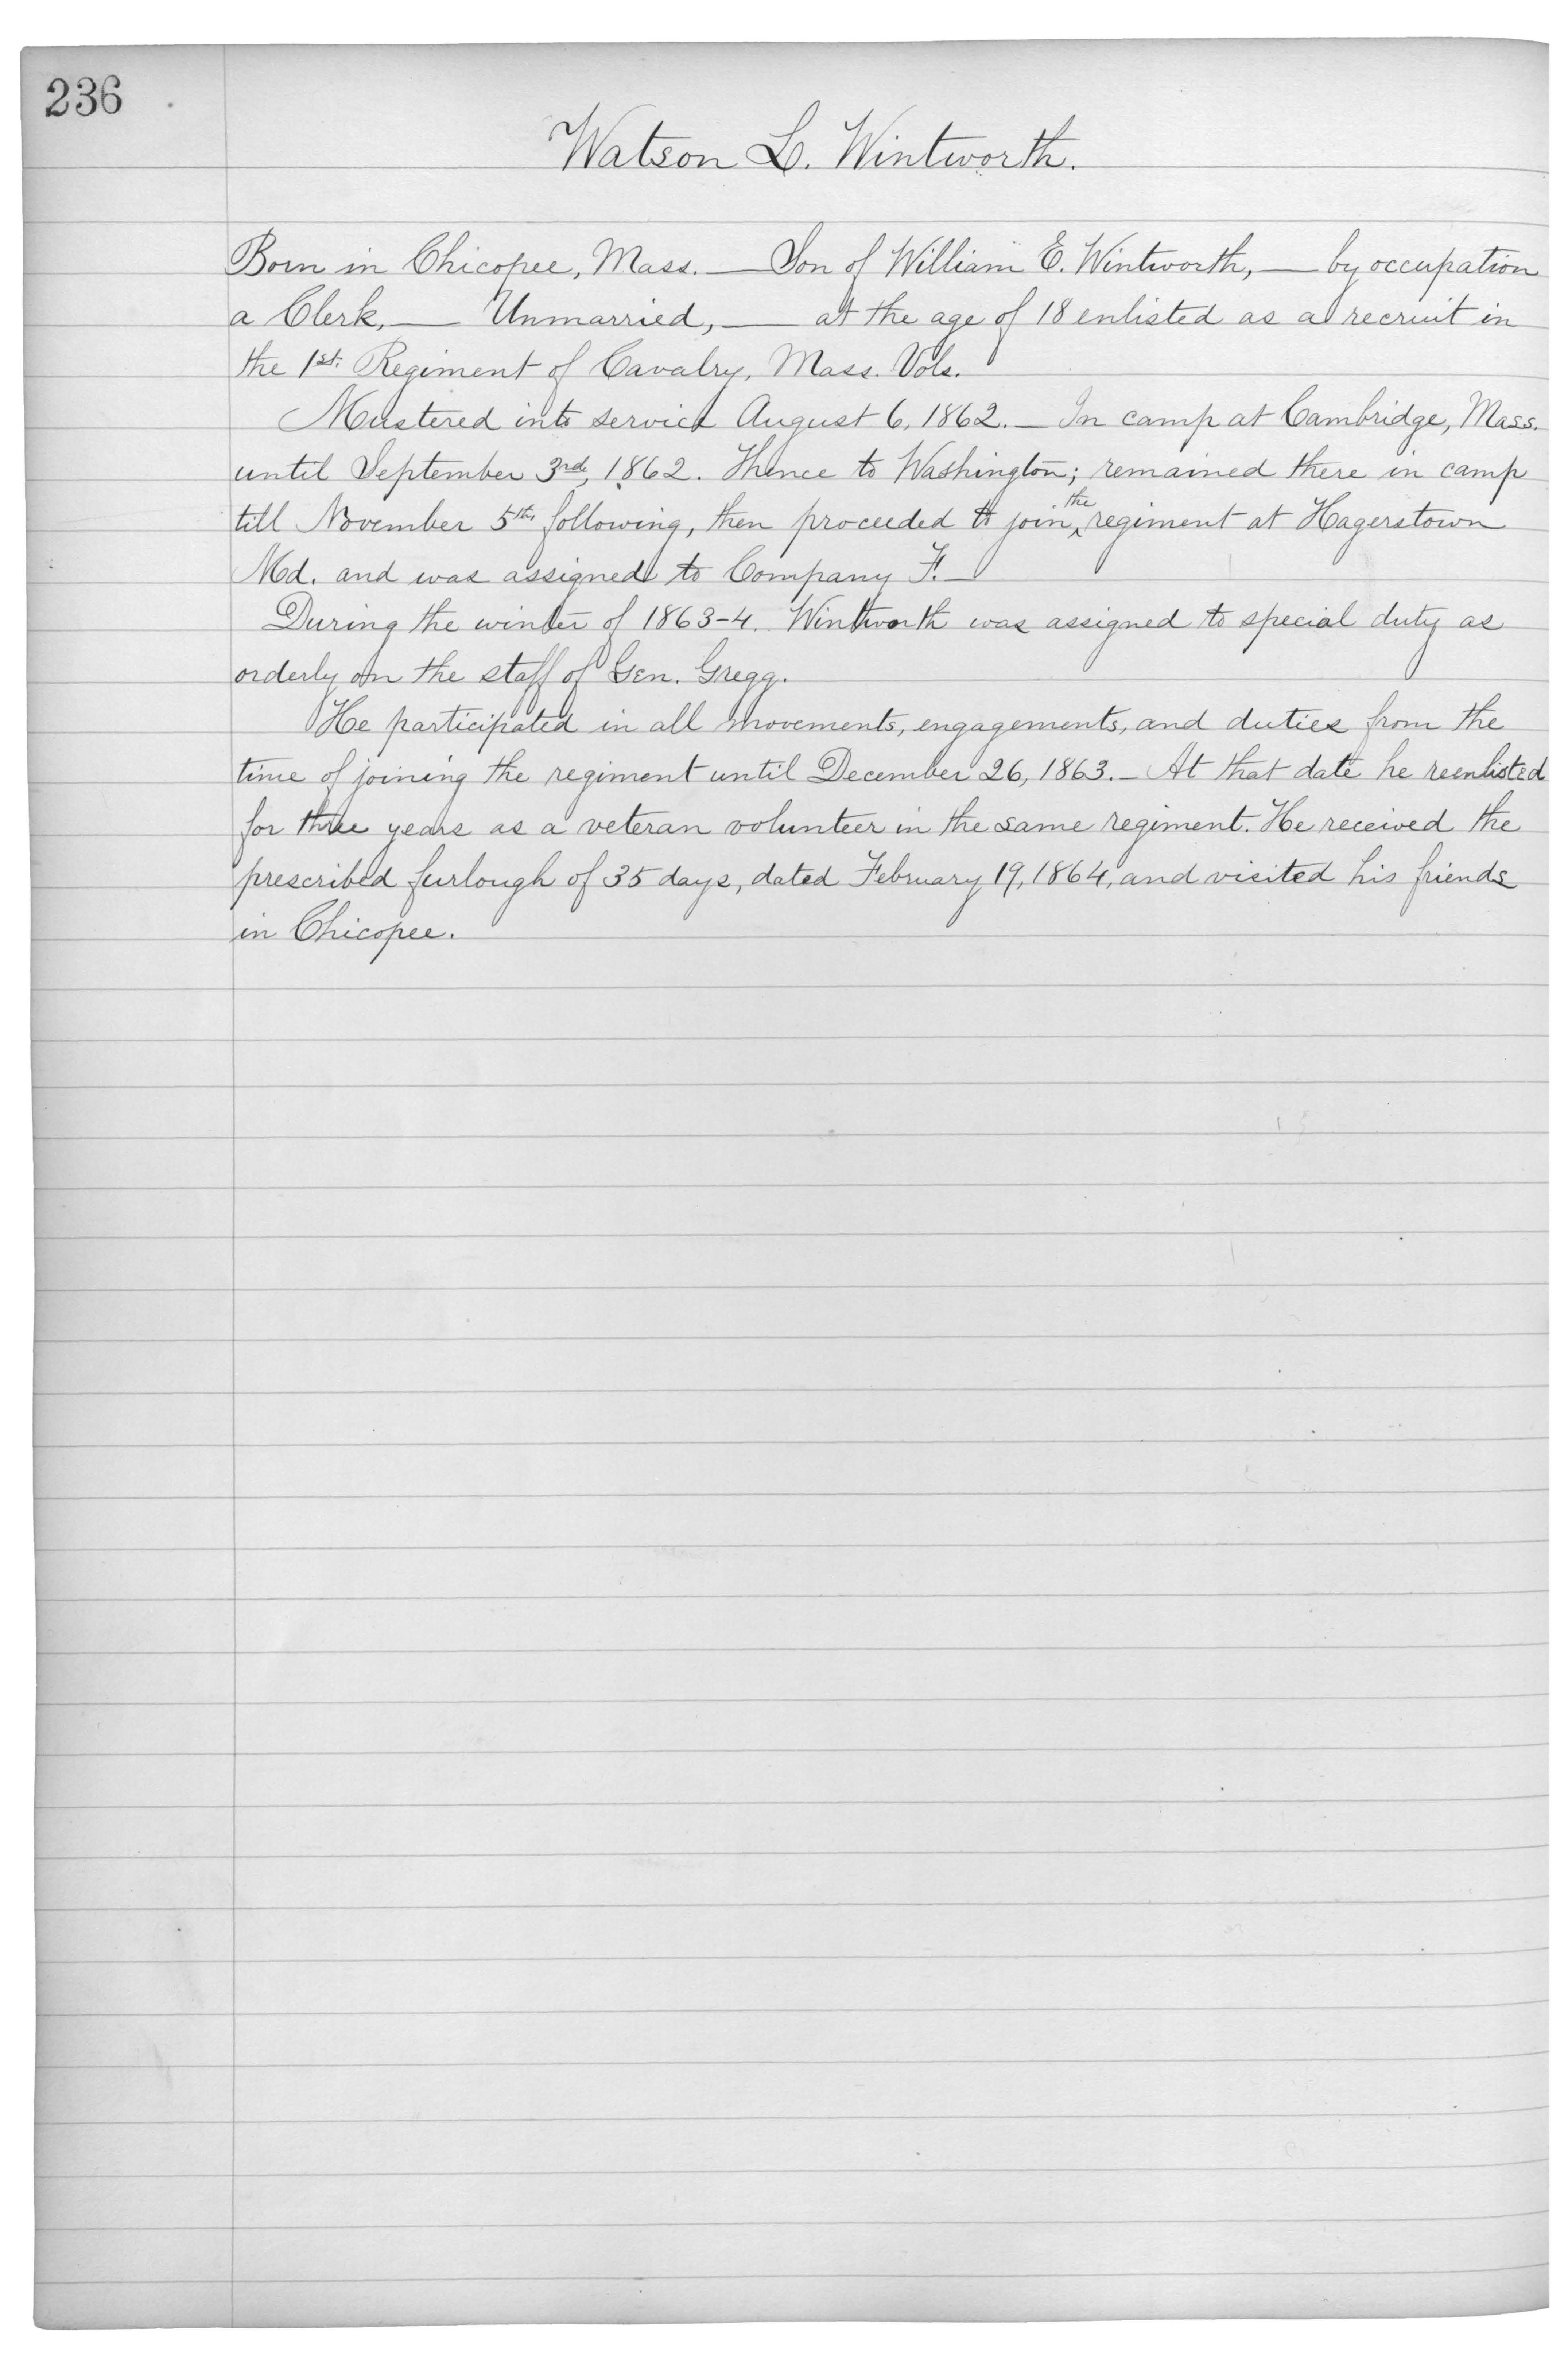 236
Watson L. Wintworth.
Born in Chicopee, Mass. — Son of William E. Wintworth, — by occupation
a Clerk, — Unmarried, — at the age of 18 enlisted as a recruit in
the 1st. Regiment of Cavalry, Mass. Vols.
Mustered into service August 6, 1862. — In camp at Cambridge, Mass.
until September 3rd, 1862. Thence to Washington; remained there in camp
till November 5th, following, then proceeded to join the regiment at Hagerstown
Md. and was assigned to Company F. —
During the winter of 1863-4. Wintworth was assigned to special duty as
orderly on the staff of Gen. Gregg.
He participated in all movements, engagements, and duties from the
time of joining the regiment until December 26, 1863. — At that date he reenlisted
for three years as a veteran volunteer in the same regiment. He received the
prescribed furlough of 35 days, dated February 19, 1864, and visited his friends
in Chicopee.